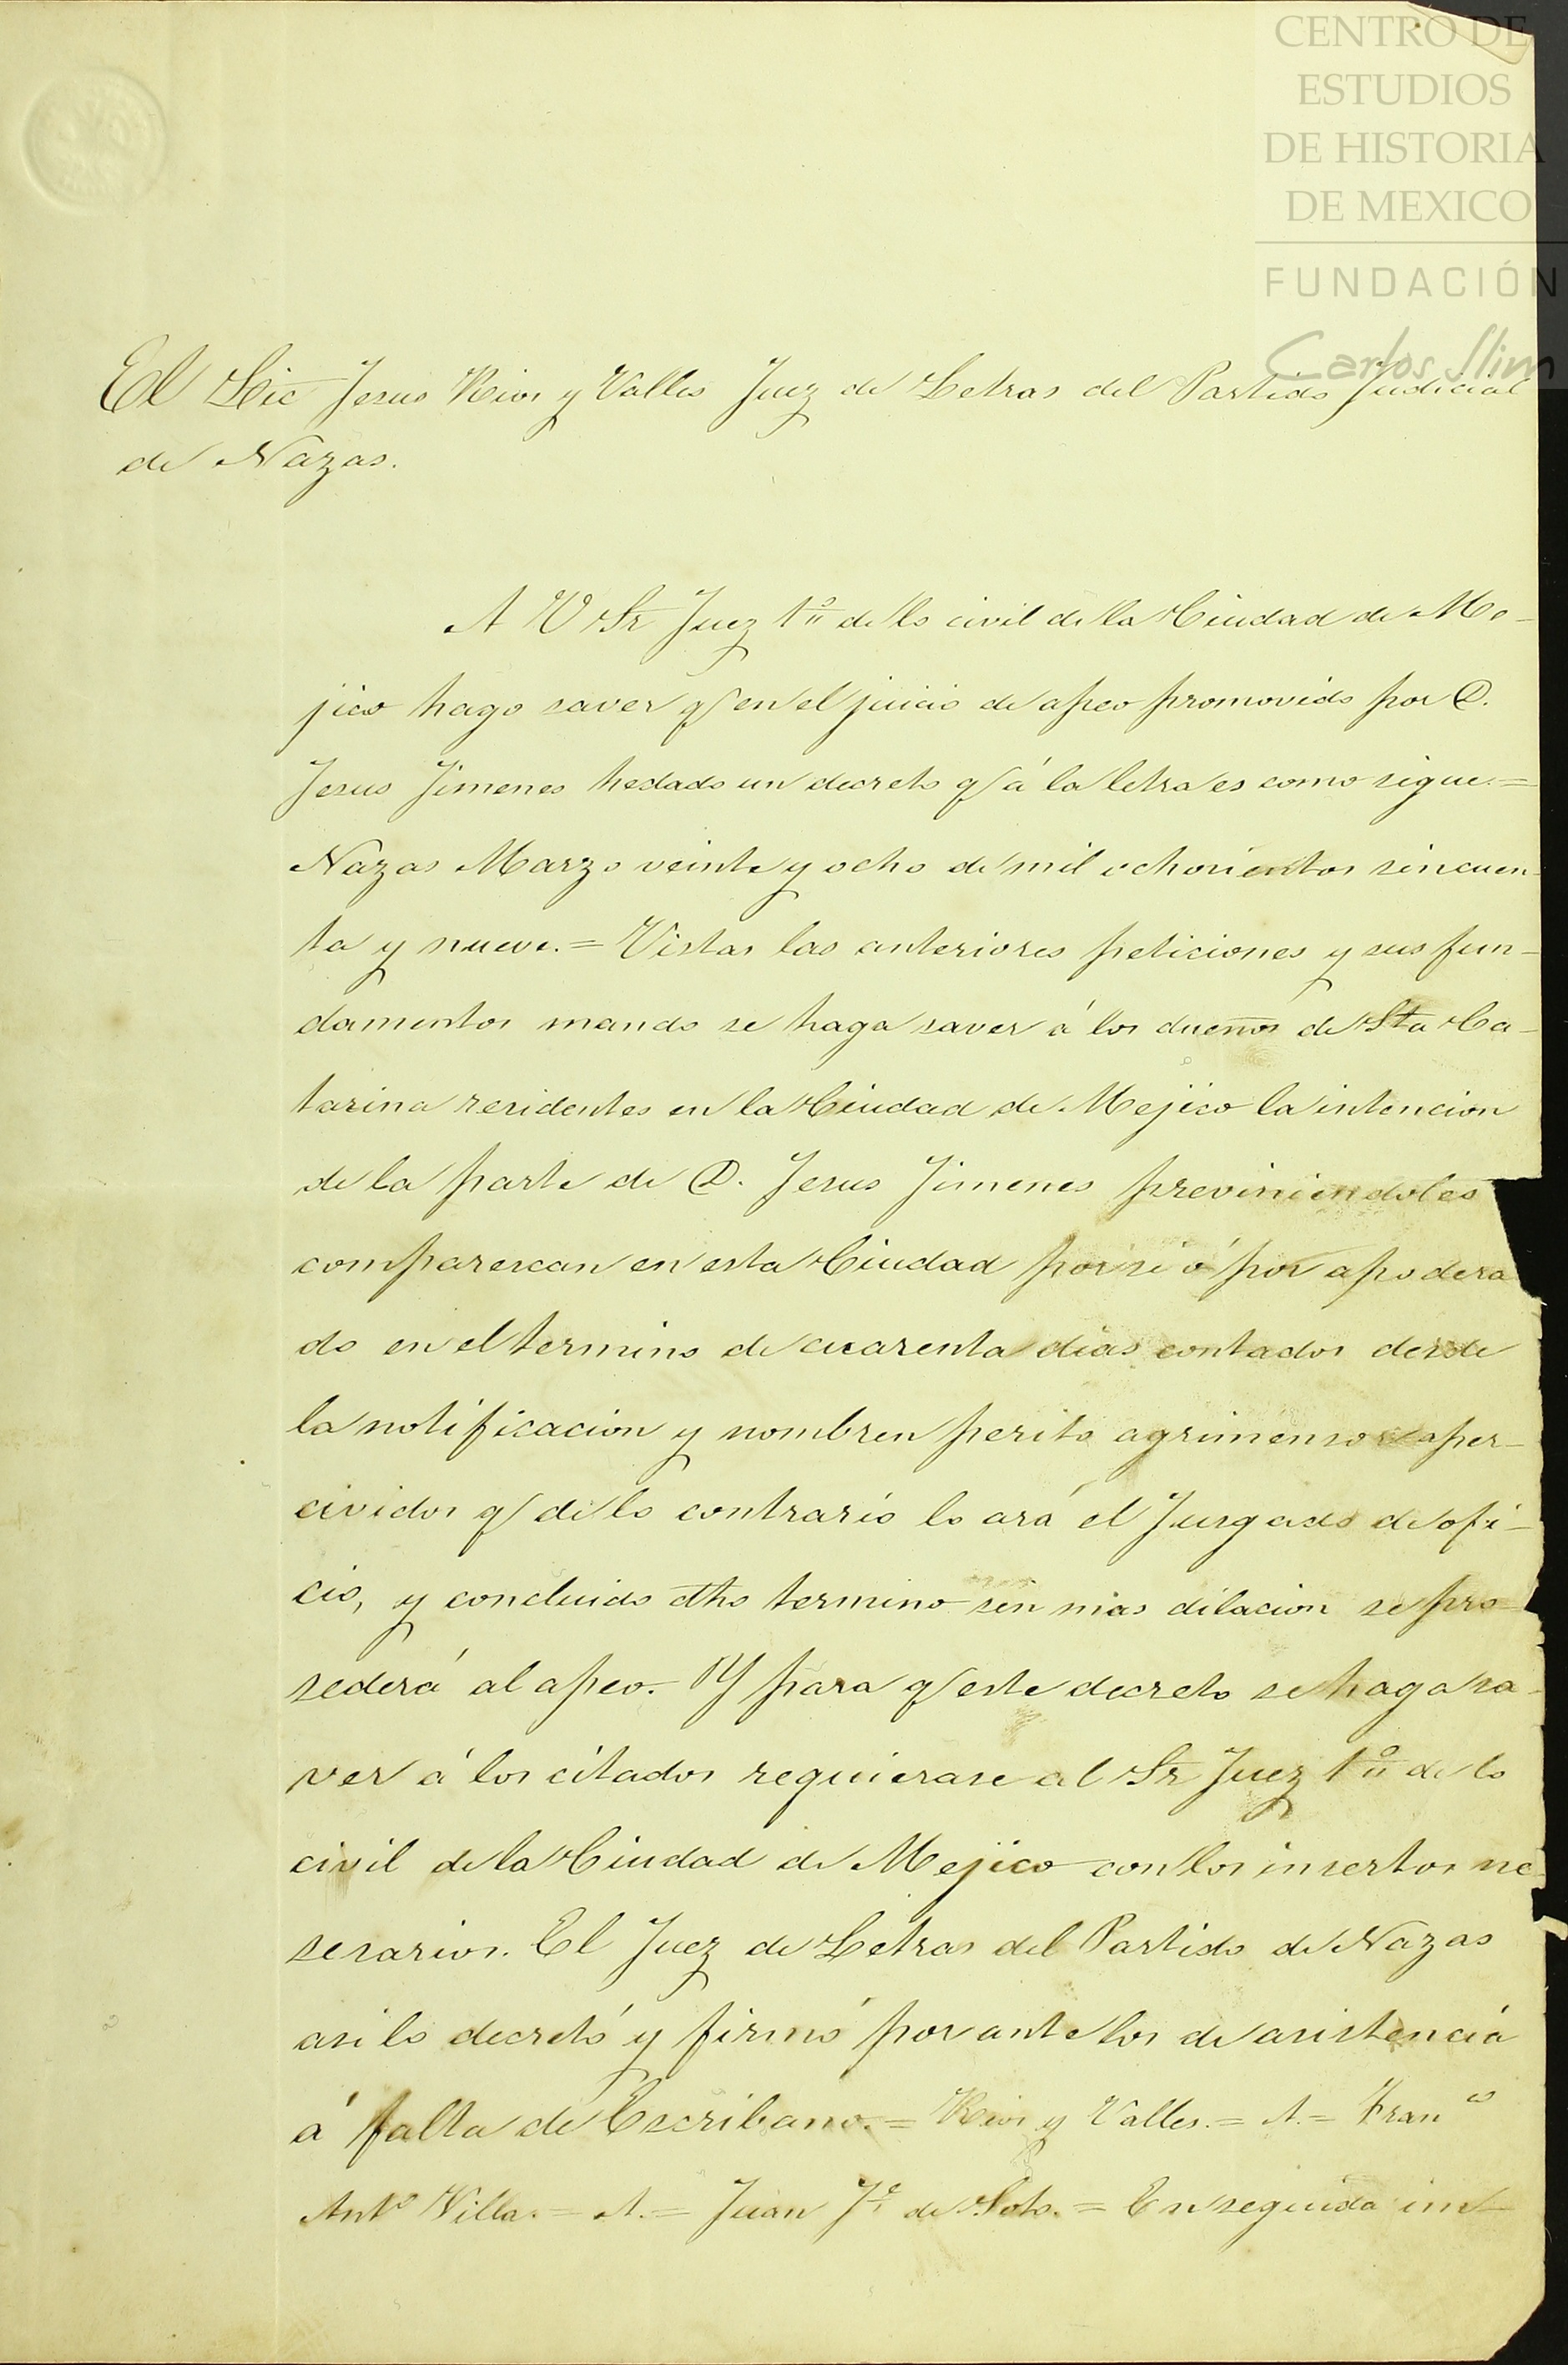 CENTRO DE
ESTUDIOS
DE HISTORIA
DE MEXICO
FUNDACIÓN
Carlos Slim
El Lic Jesus Rios y Valles Juez de Letras del Partido Judicial
de Nazas.
A V Sr Juez 1º de lo civil de la Ciudad de Me-
jico hago saver q en el juicio de apeo promovido por D.
Jesus Jimenes he dado un decreto q á la letra es como sigue.=
Nazas Marzo veinte y ocho de mil ochocientos sincuen-
ta y nueve.= Vistas las anteriores peticiones y sus fun-
damentos mando se haga saver á los dueños de Sta Ca-
tarina residentes en la Ciudad de Mejico la intencion
de la parte de D. Jesus Jimenes previniendoles
comparescan en esta Ciudad por si ó por apodera
do en el termino de cuarenta dias contados desde
la notificacion y nombren perito agrimensor aper-
cividos q de lo contrario lo ará el Jusgado de ofi-
cio, y concluido dho termino sin mas dilacion se pro-
sederá al apeo. Y para q este decreto se haga sa-
ver á los citados requierase al Sr Juez 1º de lo
civil de la Ciudad de Mejico con los insertos ne-
sesarios. El Juez de Letras del Partido de Nazas
asi lo decretó y firmó por ante los de asistencia
á falta de Escribano.= Rios y Valles.= A.= Franco
Anto Villa.= A.= Juan Je de Soto.= En seguida im-